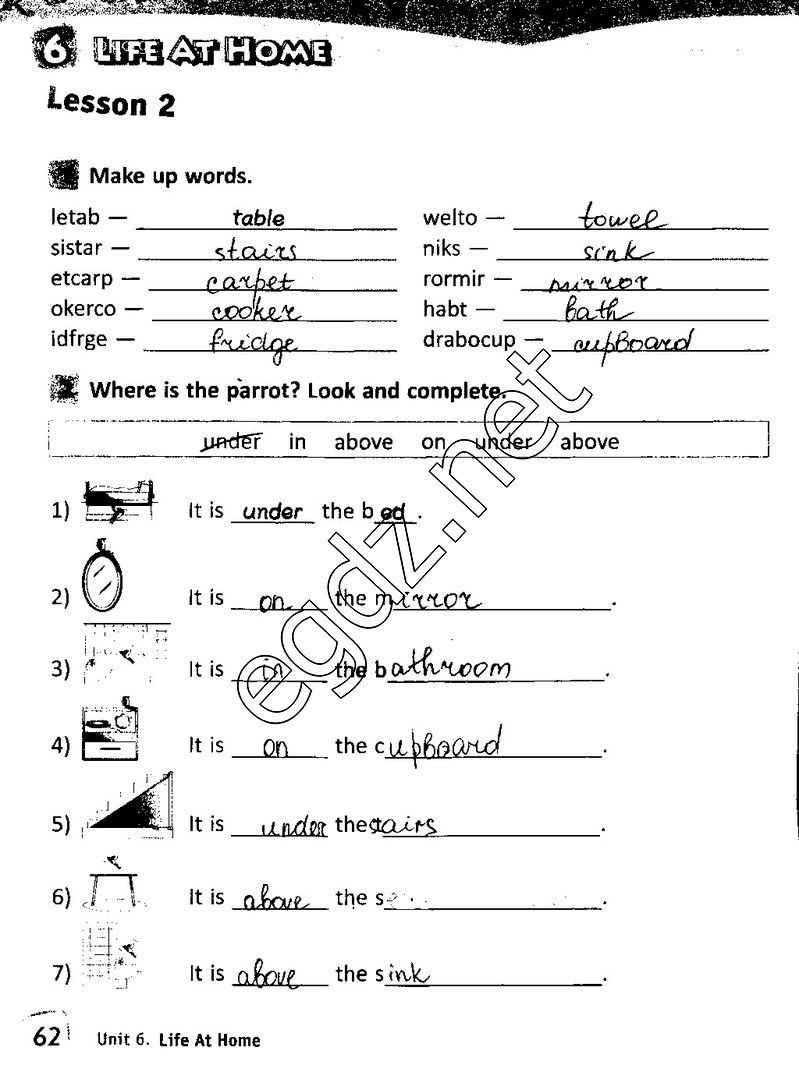 6 LIFE AT HOME
Lesson 2
1 Make up words.
letab — table
welto — towel
sistar — stairs
niks — sink
etcarp — carpet
rormir — mirror
okerco — cooker
habt — bath
idfrge — fridge
drabocup — cupboard
2 Where is the parrot? Look and complete.
under in above on under above
1) It is under the bed.
2) It is on the mirror.
3) It is in the bathroom.
4) It is on the cupboard.
5) It is under the stairs.
6) It is above the s
7) It is above the sink.
62 Unit 6. Life At Home
egdz.net